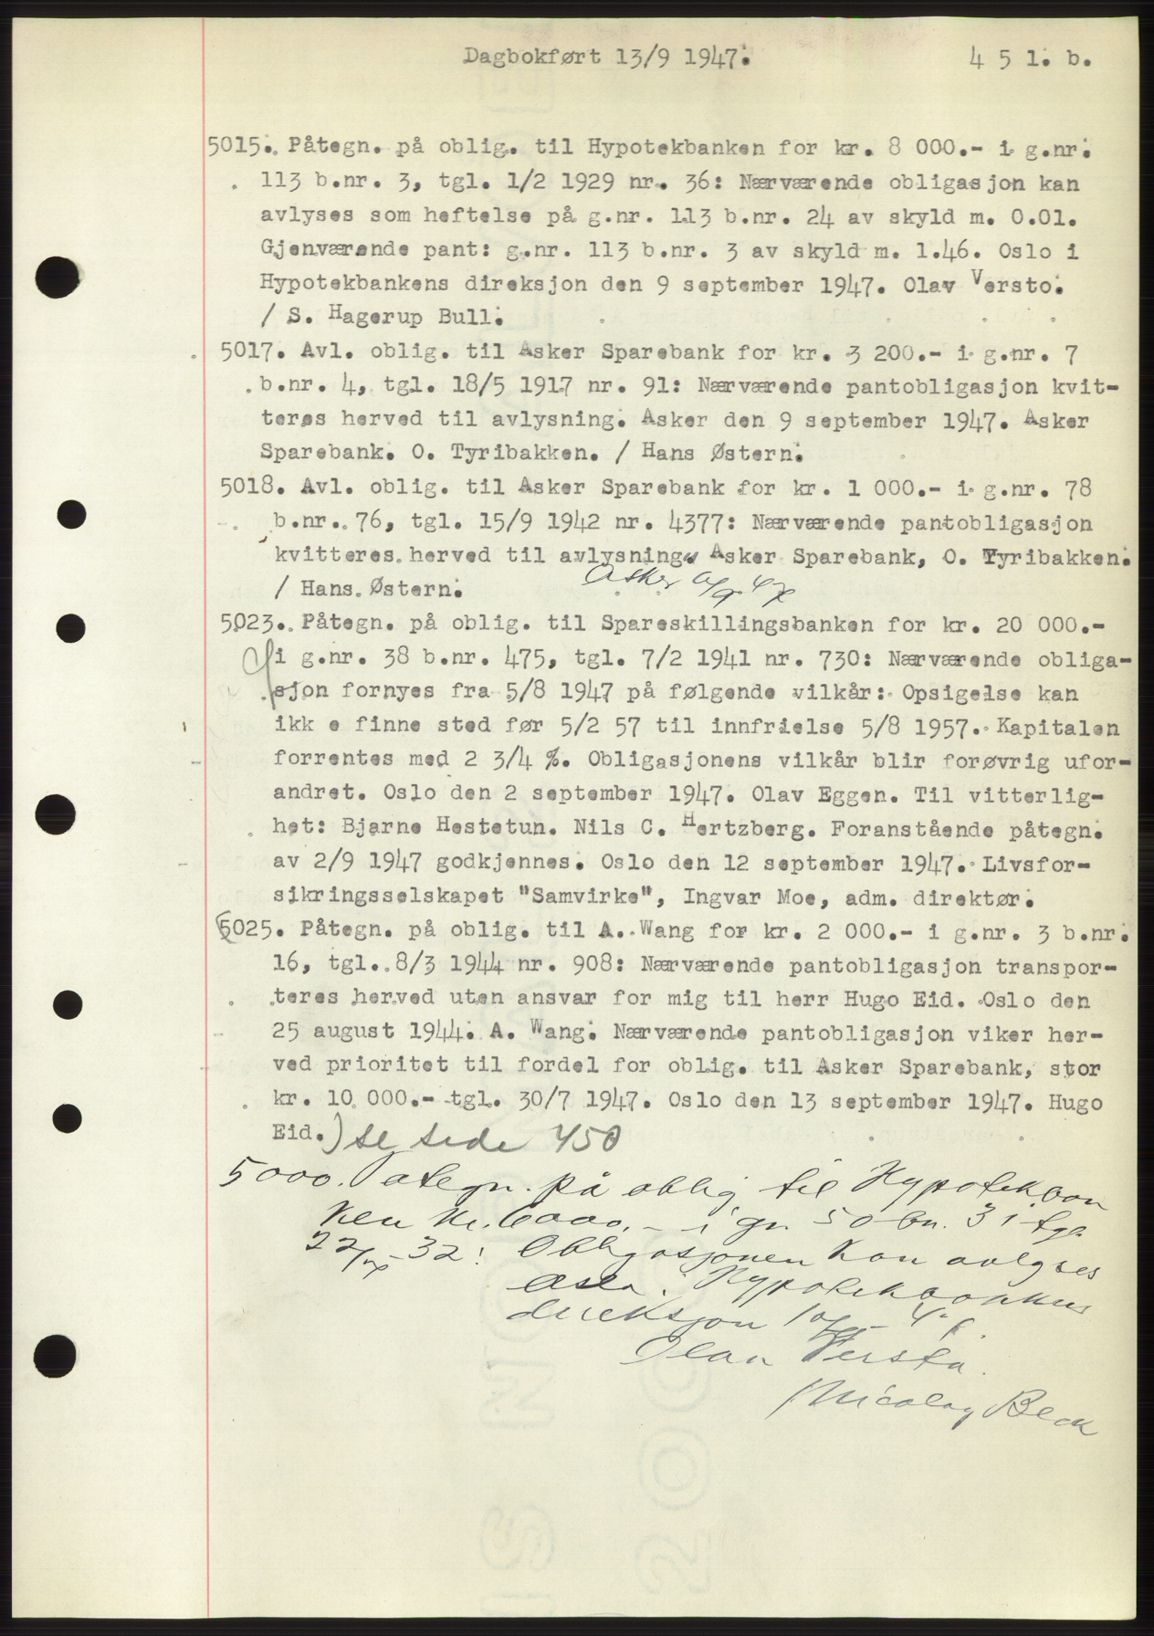 Dagbokført 13/9 1947. 4 5 1. b.
5015. Påtegn. på oblig. til Hypotekbanken for kr. 8 000.- i g.nr.
113 b.nr. 3, tgl. 1/2 1929 nr. 36: Nærværende obligasjon kan
avlyses som heftelse på g.nr. 113 b.nr. 24 av skyld m. 0.01.
Gjenværende pant: g.nr. 113 b.nr. 3 av skyld m. 1.46. Oslo i
Hypotekbankens direksjon den 9 september 1947. Olav Versto.
/ S. Hagerup Bull.
5017. Avl. oblig. til Asker Sparebank for kr. 3 200.- i g.nr. 7
b.nr. 4, tgl. 18/5 1917 nr. 91: Nærværende pantobligasjon kvit-
teres herved til avlysning. Asker den 9 september 1947. Asker
Sparebank. O. Tyribakken. / Hans Østern.
5018. Avl. oblig. til Asker Sparebank for kr. 1 000.- i g.nr. 78
b.nr. 76, tgl. 15/9 1942 nr. 4377: Nærværende pantobligasjon
kvitteres herved til avlysning. Asker Sparebank, O. Tyribakken.
/ Hans Østern. Asker
5023. Påtegn. på oblig. til Spareskillingsbanken for kr. 20 000.-
i g.nr. 38 b.nr. 475, tgl. 7/2 1941 nr. 730: Nærværende obliga-
sjon fornyes fra 5/8 1947 på følgende vilkår: Opsigelse kan
ikk e finne sted før 5/2 57 til innfrielse 5/8 1957. Kapitalen
forrentes med 2 3/4 %. Obligasjonens vilkår blir forøvrig ufor-
andret. Oslo den 2 september 1947. Olav Eggen. Til vitterlig-
het: Bjarne Hestetun. Nils C. Hertzberg. Foranstående påtegn.
av 2/9 1947 godkjennes. Oslo den 12 september 1947. Livsfor-
sikringsselskapet "Samvirke", Ingvar Moe, adm. direktør.
5025. Påtegn. på oblig. til A. Wang for kr. 2 000.- i g.nr. 3 b.nr.
16, tgl. 8/3 1944 nr. 908: Nærværende pantobligasjon transpor-
teres herved uten ansvar for mig til herr Hugo Eid. Oslo den
25 august 1944. A. Wang. Nærværende pantobligasjon viker her-
ved prioritet til fordel for oblig. til Asker Sparebank, stor
kr. 10 000.- tgl. 30/7 1947. Oslo den 13 september 1947. Hugo
Eid.) se side 450
5000. Påtegn. på oblig til Hypotekban
ken kr. 6000.- i gn 50 bn. 31 tgl.
- 32: Obligasjonen kan avlyses
Oslo i Hypotekbankens
direksjon
Olav Versto.
/ Nicolay Beck